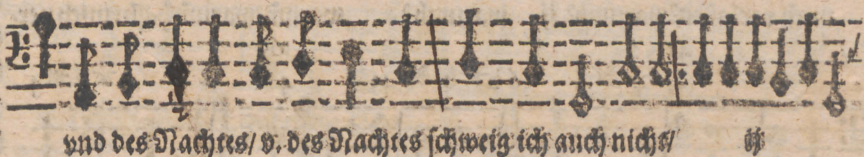 vnd des Nachtes/ v. des Nachtes schweig ich auch nicht/ ij